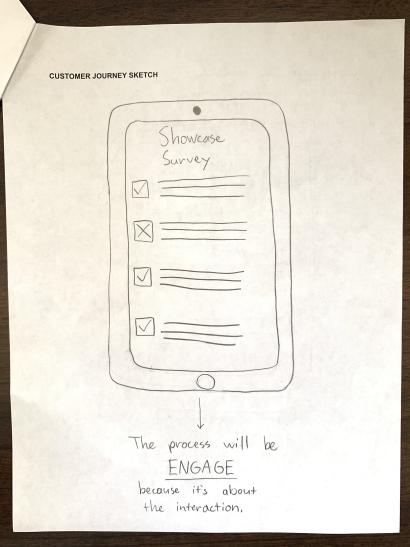 CUSTOMER JOURNEY SKETCH
Showcase
Survey
The process will be
ENGAGE
because it's about
the interaction.